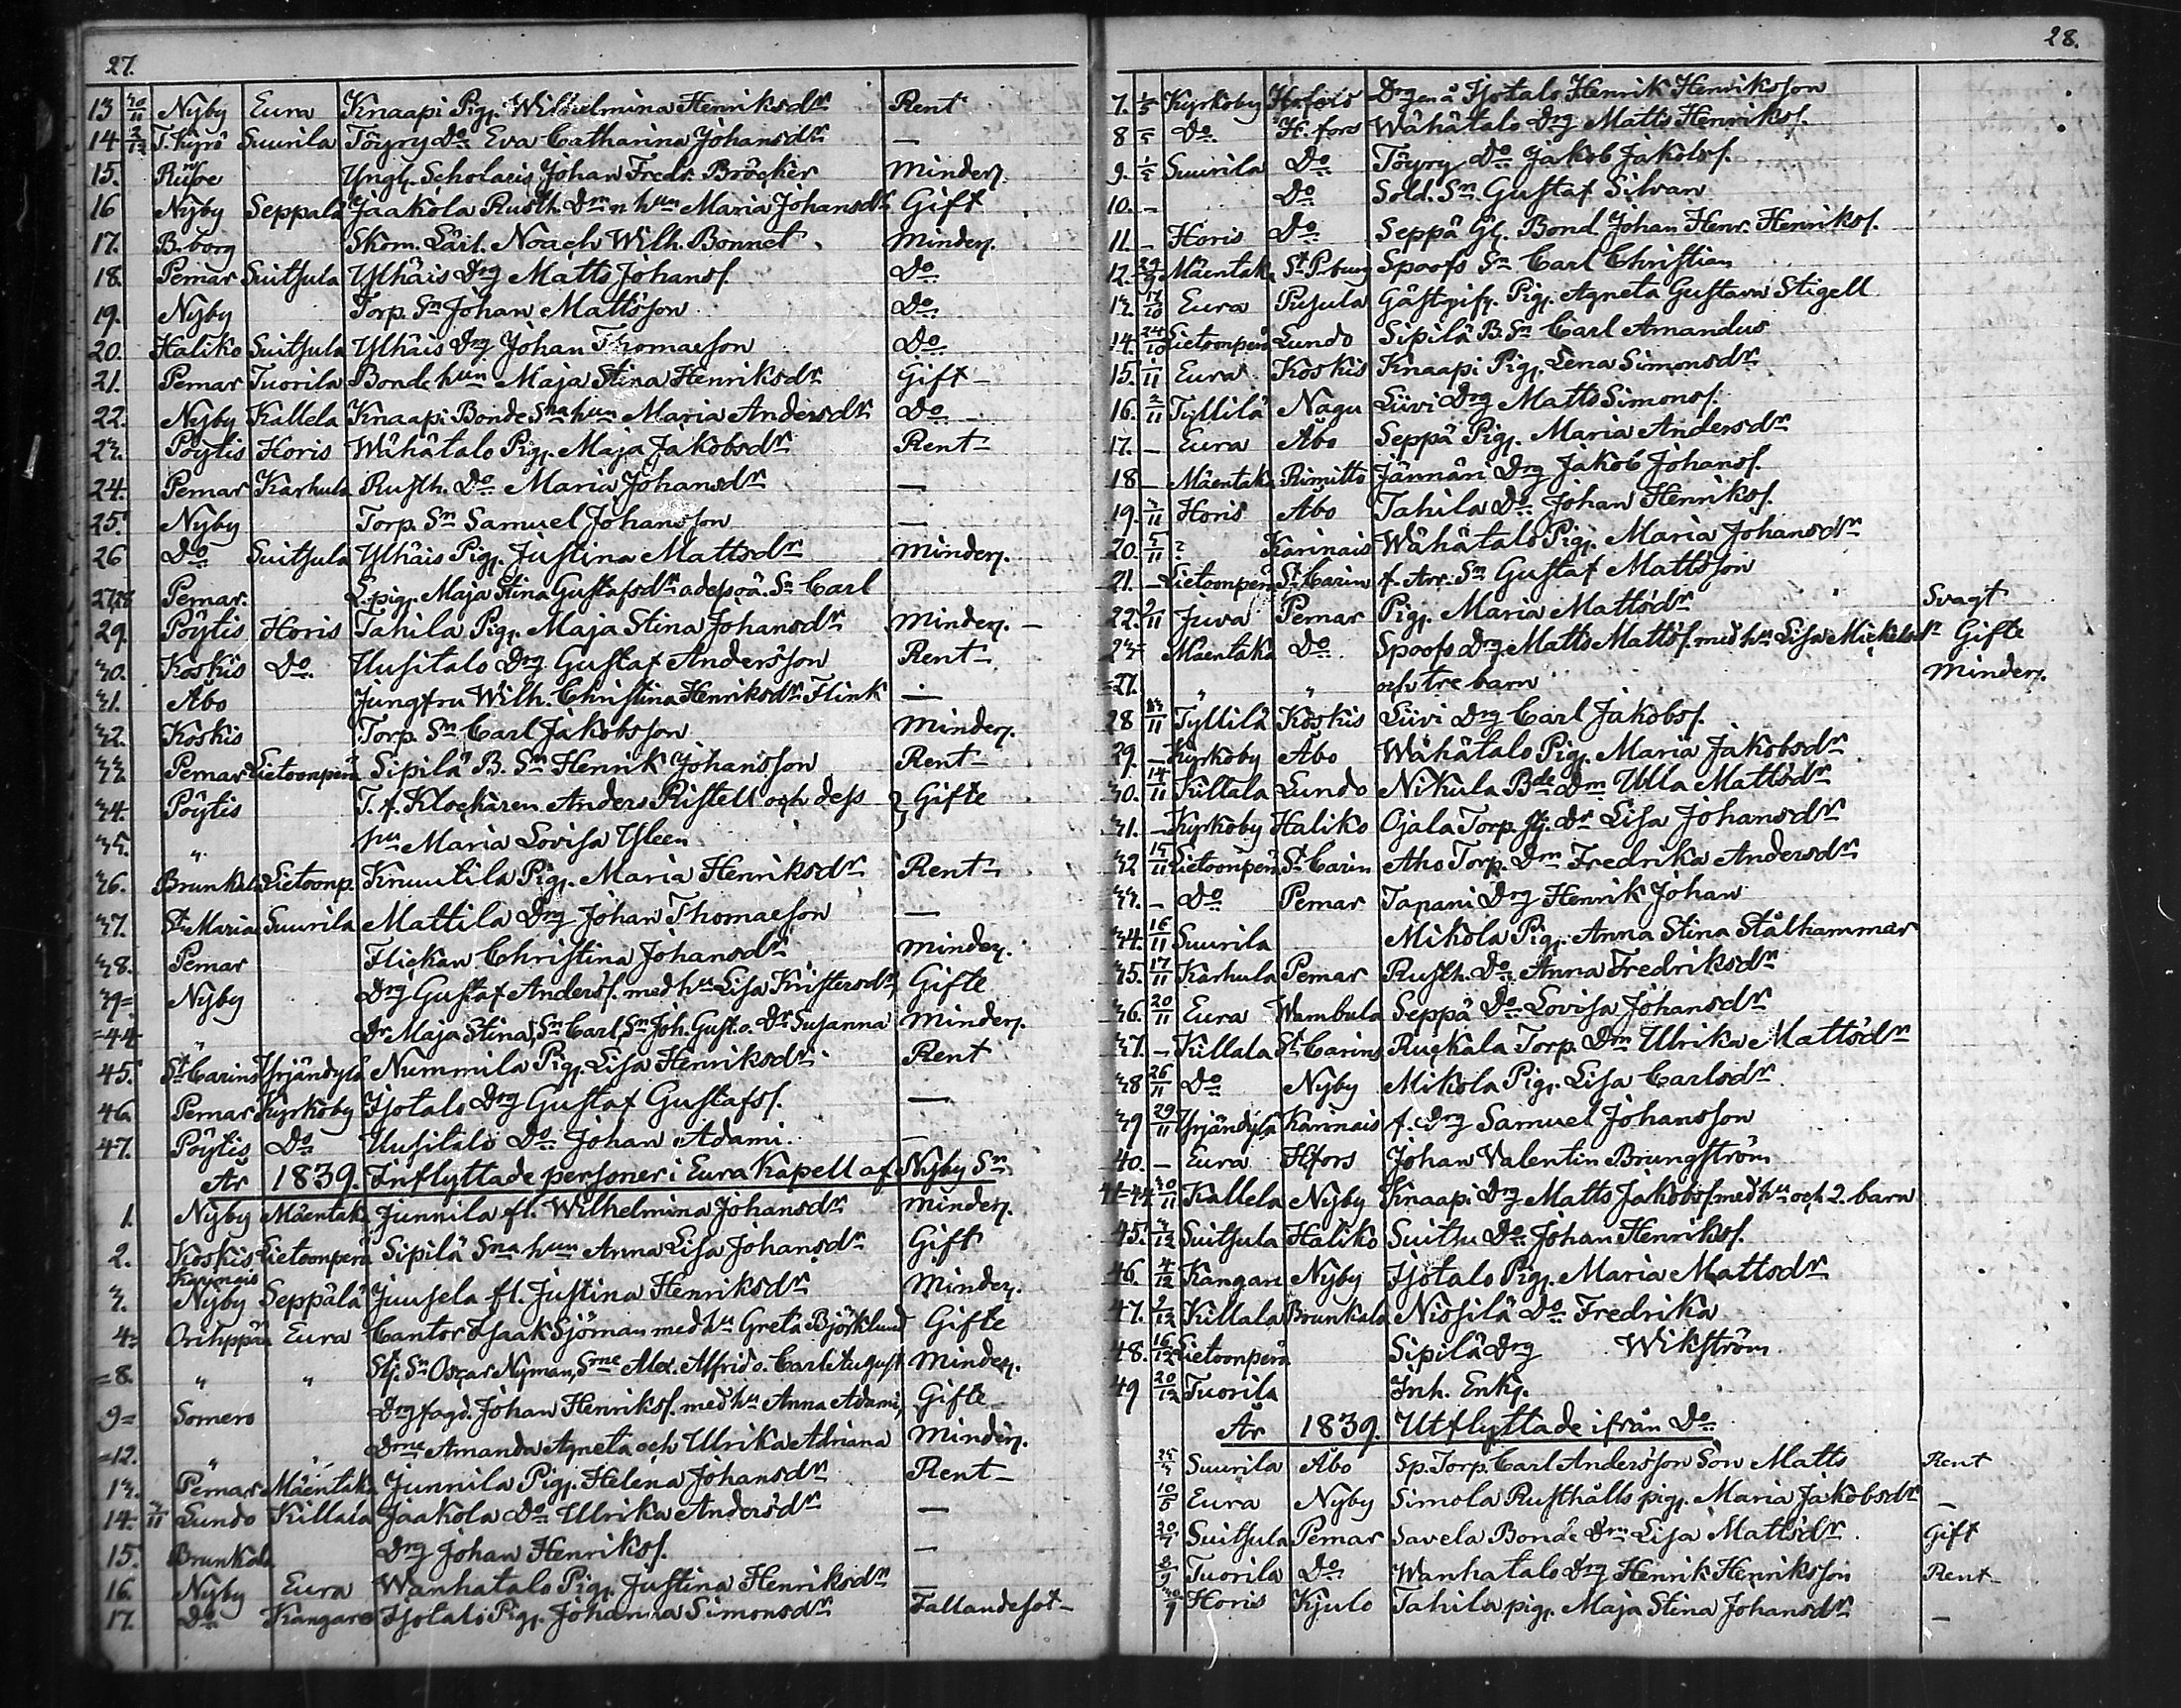 27.
13 30/11 Nyby Eura Knaapi Pig. Wilhelmina Henriksdr Rent
14 2/12 T. Kyrö Suurila Töyry Do Eva Catharina Johansdr —
15. Yngl. Scholaris Johan Fredr. Bröcker Minderj.
16 Nyby Seppälä Jaakola Rusth. Dm n hun Maria Johansdr Gift
17. B.borg Skom. Lärl. Noach Wilh. Bonnet. Minderj.
18. Pemar Suitsula Ylhäis Drg Matts Johanss. Do
19. Nyby Torp. Sn Johan Mattsson Do
20. Haliko Suitsula Ylhäis Drg Johan Thomaeson Do
21. Pemar Tuorila Bonde hun Maja Stina Henriksdr Gift —
22. Nyby Kallela Knaapi Bonde Sna hun Maria Andersdr Do —
23. Pöytis Horis Wähätalo Pig. Maja Jakobsdr Rent —
24. Pemar Karhula Rusth. Do Maria Johansdr —
25. Nyby Torp. Sn Samuel Johansson —
26 Do Suitsula Ylhäis Pig. Justina Mattsdr Minderj.
27,28 Pemar. L. pig. Maja Stina Gustafsdr o dess oä. Sn Carl
29. Pöytis Horis Tahila Pig. Maja Stina Johansdr Minderj. —
30. Koskis Do Uusitalo Drg Gustaf Andersson Rent —
31. Åbo Jungfru Wilh. Christina Henriksdr Flink —
32. Koskis Torp. Sn Carl Jakobsson Minderj.
33. Pemar Lietoonperä Sipilä B. Sn Henrik Johansson Rent —
34. Pöytis T. f. Klockaren Anders Ristell och dess } Gifte
35. " hu Maria Lovisa Yleen
36. Brunkala Lietoonp. Knuutila Pig. Maria Henriksdr Rent —
37. St Maria Suurila Mattila Drg Johan Thomaeson —
38. Pemar Flickan Christina Johansdr Minderj.
39= Nyby Drg Gustaf Anderss. med hu Lisa Kristersdr, Gifte
=44 " Dr Maja Stina, Sn Carl, Sn Joh. Gust. o. Dr Susanna Minderj.
45. St Carins Yrjändylä Nummila Pig. Lisa Henriksdr Rent
46. Pemar Kyrkoby Isotalo Drg Gustaf Gustafss. —
47. Pöytis Do Uusitalo Do Johan Adami. —
År 1839. Inflyttade personer i Eura Kapell af Nyby Sn
1. Nyby Mäentaka Junnila fl. Wilhelmina Johansdr Minderj.
2. Koskis Lietoonperä Sipilä Sna hun Anna Lisa Johansdr Gift
Karinais
3. Nyby Seppälä Juusela fl. Justina Henriksdr Minderj.
4= Orihppää Eura Cantor Isaak Sjöman med hu Greta Björklund Gifte
=8. " " Stf. Sn Oscar Nyman, Srne Alex. Alfrid o. Carl August Minderj.
9= Somero Drg fogd. Johan Henrikss. med hu Anna Adami, Gifte
=12. " " Drne Amanda Agneta och Ulrika Adriana Minderj.
13. Pemar Mäentaka Junnila Pig. Helena Johansdr Rent —
14. 3/11 Lundo Killala Jaakola Do Ulrika Andersdr —
15. Brunkala Drg Johan Henrikss. —
16. Nyby Eura Wanhatalo Pig. Justina Henriksdr —
17. Do Kangare Isotalo Pig. Johanna Simonsdr Fallandesot —
28.
7. Kyrkoby H.fors Drg en å Isotalo Henrik Henriksson
8 Do H. fors Wähätalo Drg Matts Henrikss.
9. Suurila Do Töyry Do Jakob Jakobss.
10. — Do Sold. Sn Gustaf Silvan
11. — Horis Do Seppä Gl. Bond. Johan Henr. Henrikss.
12. 29/9 Mäentaka St P.burg Spoofs Sn Carl Christian
13. 17/10 Eura Pusula Gästgif. Pig. Agneta Gustava Stigell
14. 24/10 Lietoonperä Lundo Sipilä B. Sn Carl Amandus
15. 1/11 Eura Koskis Knaapi Pig. Lena Simonsdr
16. 2/11 Tyllilä Nagu Siivi Drg Matts Simonss.
17. — Eura Åbo Seppä Pig. Maria Andersdr
18 — Mäentaka Rimitto Jännäri Drg Jakob Johanss.
19. 3/11 Horis Åbo Tahila Do Johan Henrikss.
20. 5/11 ? Karinais Wähätalo Pig. Maria Johansdr
21. — Lietoonperä St Carin f. Arr. Sn Gustaf Mattsson
22. 9/11 Juva Pemar Pig. Maria Mattsdr Svagt
23= Mäentaka Do Spoofs Drg Matts Mattss. med hu Lisa Mickelsdr Gifte
=27. " " och tre barn Minderj.
28 13/11 Tyllilä Koskis Siivi Drg Carl Jakobss.
29. — Kyrkoby Åbo Wähätalo Pig. Maria Jakobsdr
30. 14/11 Killala Lundo Nikula Bde Dm Ulla Mattsdr
31. — Kyrkoby Haliko Ojala Torp. Dr Lisa Johansdr
32 15/11 Lietoonperä St Carin Aho Torp. Dm Fredrika Andersdr
33. — Do Pemar Tapani Drg Henrik Johan
34. 16/11 Suurila Mikola Pig. Anna Stina Stålhammar
35. 17/11 Karhula Pemar Rusth. Do Anna Fredriksdr
36. 20/11 Eura Wambula Seppä Do Lovisa Johansdr
37. — Killala St Carins Ruckala Torp. Dm Ulrika Mattsdr
38 26/11 Do Nyby Mikola Pig. Lisa Carlsdr
39 29/11 Yrjändylä Karinais f. Drg Samuel Johansson
40. — Eura H.fors Johan Valentin Brungström
41-44 30/11 Kallela Nyby Knaapi Drg Matts Jakobss. med hu och 2. barn
45. 3/12 Suitsula Haliko Suitsu Do Johan Henrikss.
46. 4/12 Kangare Nyby Isotalo Pig. Maria Mattsdr
47. 9/12 Killala Brunkala Nissilä Do Fredrika
48. 16/12 Lietoonperä Sipilä Drg Wikström
49 20/12 Tuorila Inh. Enk.
År 1839. Utflyttade ifrån Do
25/3 Suurila Åbo Sp. Torp. Carl Andersson Son Matts Rent
10/5 Eura Nyby Simola Rusthålls pig. Maria Jakobsdr —
20/7 Suitsula Pemar Savela Bonde Dm Lisa Mattsdr Gift
8/9 Tuorila Do Wanhatalo Drg Henrik Henriksson Rent —
30/9 Horis Kjulo Tahila pig. Maja Stina Johansdr —